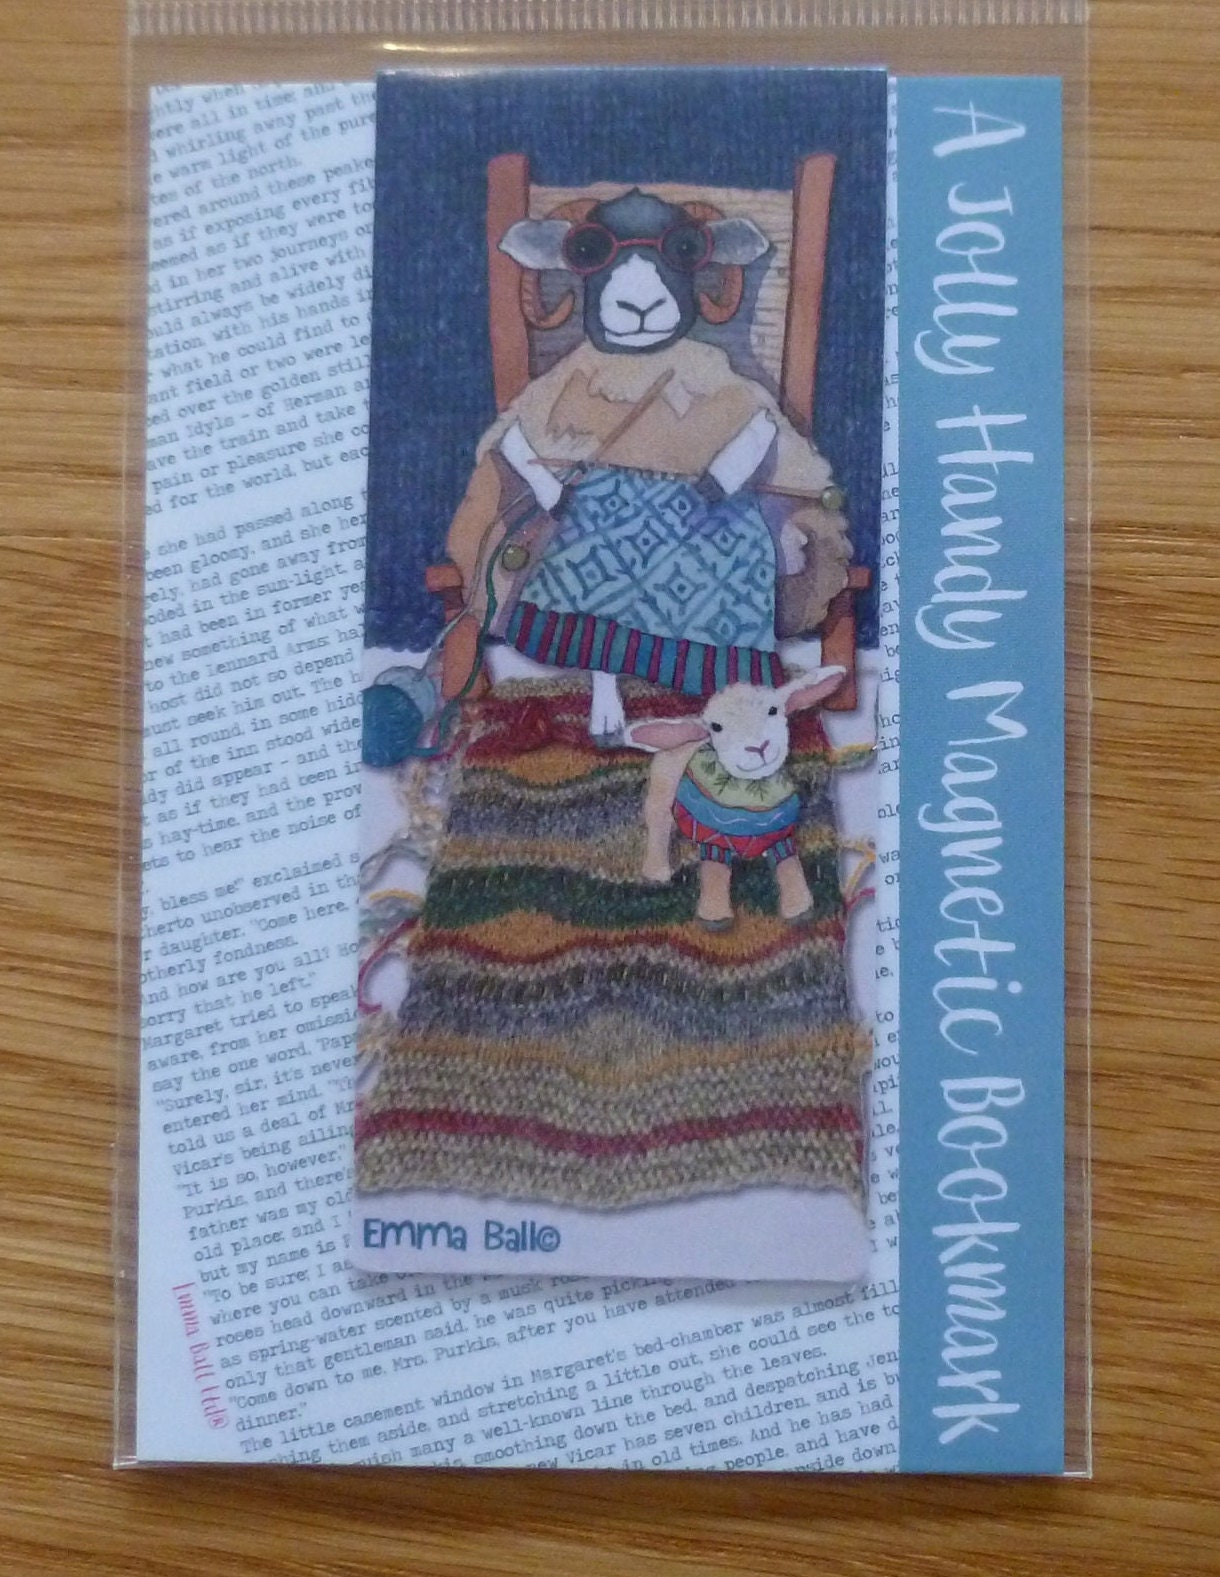 A Jolly Handy Magnetic Bookmark
Emma Ball©
Emma Ball Ltd®
whirling away past the
warm light of the pure
of the north.
ered around these peake
as if exposing every fit
eemed as if they were to
d in her two journeys or
stirring and alive with
uld always be widely di
tation, with his hands in
what he could find to
ant field or two were le
ed over the golden still
man Idyls - of Herman a
ave the train and take t
pain or pleasure she co
ed for the world, but eac
she had passed along t
been gloomy, and she her
rely, had gone away from
oded in the sun-light, a
t had been in former yea
new something of what w
to the Lennard Arms; ha
host did not so depend
must seek him out. The h
all round, in some hidd
or of the inn stood wide
dy did appear - and the
t as if they had been in
hay-time, and the prov
ets to hear the noise of
y, bless me!" exclaimed s
therto unobserved in th
r daughter. "Come here,
otherly fondness.
And how are you all? Ho
sorry that he left."
Margaret tried to speak
aware, from her omissio
say the one word, "Papa
"Surely, sir, it's never
entered her mind. "Th
told us a deal of Mr
Vicar's being ailing
"It is so, however."
Purkis, and there's
father was my old
old place; and I
but my name is P
"To be sure; I as
where you can take
roses head downward in the
as spring-water scented by a musk ros
only that gentleman said, he was quite picking
"Come down to me, Mrs. Purkis, after you have attended
dinner."
The little casement window in Margaret's bed-chamber was almost fill
hing them aside, and stretching a little out, she could see the to
uish many a well-known line through the leaves.
smoothing down the bed, and despatching Jen
new Vicar has seven children, and is bu
in old times. And he has had
people, and have d
upside down